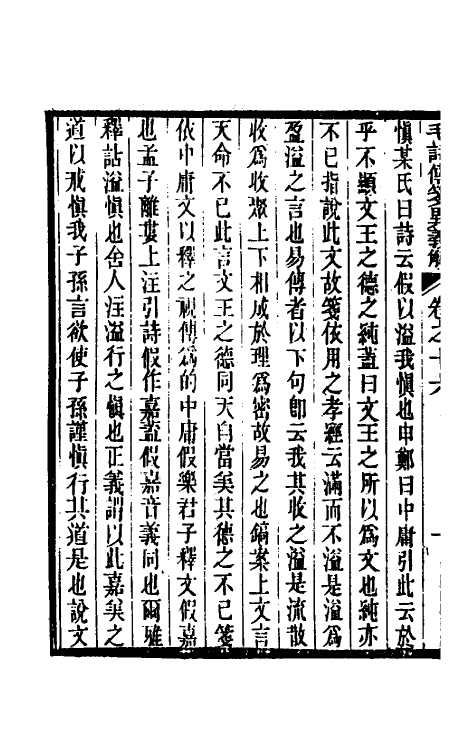 毛詩傳箋異義解 卷之十六 一
慎某氏曰詩云假以溢我慎也申鄭曰中庸引此云於
乎不顯文王之德之純蓋曰文王之所以爲文也純亦
不已指說此文故箋依用之孝經云滿而不溢是溢爲
盈溢之言也易傳者以下句卽云我其收之溢是流散
收爲收聚上下相成於理爲密故易之也鎬案上文言
天命不已此言文王之德同天自當美其德之不已箋
依中庸文以釋之視傳爲的中庸假樂君子釋文假嘉
也孟子離婁上注引詩假作嘉蓋假嘉音義同也爾雅
釋詁溢慎也舍人注溢行之慎也正義謂以此嘉美之
道以戒慎我子孫言欲使子孫謹慎行其道是也說文